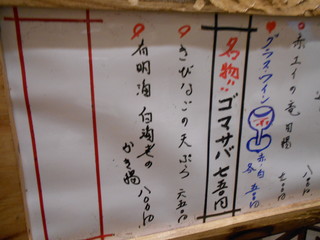 赤エイの竜田揚 七〇〇円
グラスワイン 赤・白 各 五〇〇円
名物!! ゴマサバ 七五〇円
きびなごの天ぷら 六五〇円
有明海 白海老の
かき揚 八〇〇円